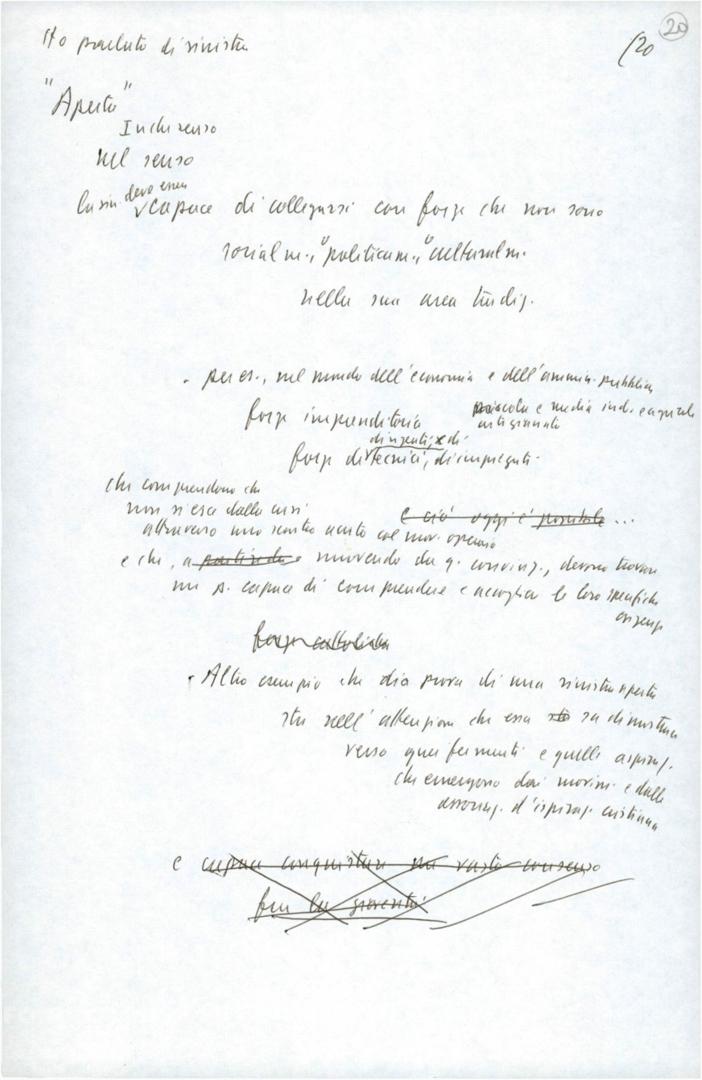 20
/20
Ho parlato di sinistra
"Aperta"
In che senso
nel senso
la sin. deve essere capace di collegarsi con forze che non sono
socialm., politicam., culturalm.
nella sua area tradiz.
. per es., nel mondo dell'economia e dell'ammin. pubblica,
forze imprenditoria piccola e media ind. e agricole
artigianato
dirigenti, di
forze di tecnici, di impiegati.
che comprendono che
non si esce dalla crisi e ciò oggi è possibile...
attraverso uno scontro aperto col mov. operaio
e che, a partire da e muovendo da q. convinz., devono trovare
una s. capace di comprendere e accogliere le loro specifiche
esigenze
forze cattoliche
. Altro esempio che dia prova di una sinistra aperta
sta nell'attenzione che essa sa dimostrare
verso quei fermenti e quelle aspiraz.
che emergono dai movim. e dalle
associaz. d'ispiraz. cristiana
e capace conquistare un vasto consenso
fra la gioventù